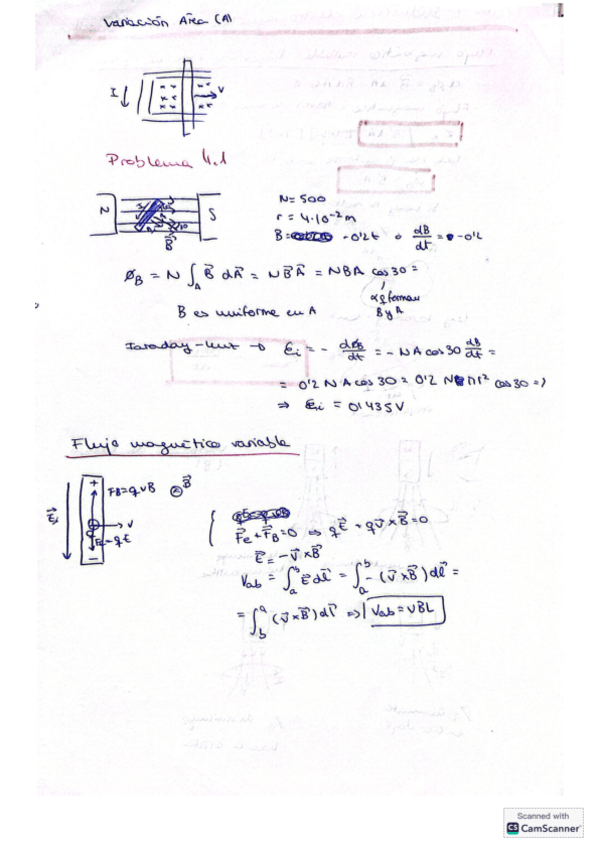 Variación Área (A)
I
V
Problema 4.1
N
S
B⃗
N = 500
r = 4·10⁻² m
B = -0'2t o dB/dt = -0'2
ØB = N ∫A B⃗ dA⃗ = N B⃗ A⃗ = NBA cos 30 =
α q forman
B y A
B es uniforme en A
Faraday-Lenz → Ei = - dØB/dt = - NA cos 30 dB/dt =
= 0'2 N A cos 30 = 0'2 N π r² cos 30 =>
=> Ei = 0'435 V
Flujo magnético variable
E⃗i
+
FB = q v B
B⃗
v
Fe = qE
-
F⃗e + F⃗B = 0 => qE⃗ + qv⃗ x B⃗ = 0
E⃗ = -v⃗ x B⃗
Vab = ∫ₐᵇ E⃗ dl⃗ = ∫ₐᵇ - (v⃗ x B⃗) dl⃗ =
= ∫_b^a (v⃗ x B⃗) dl⃗ => Vab = vBL
Scanned with
CS CamScanner